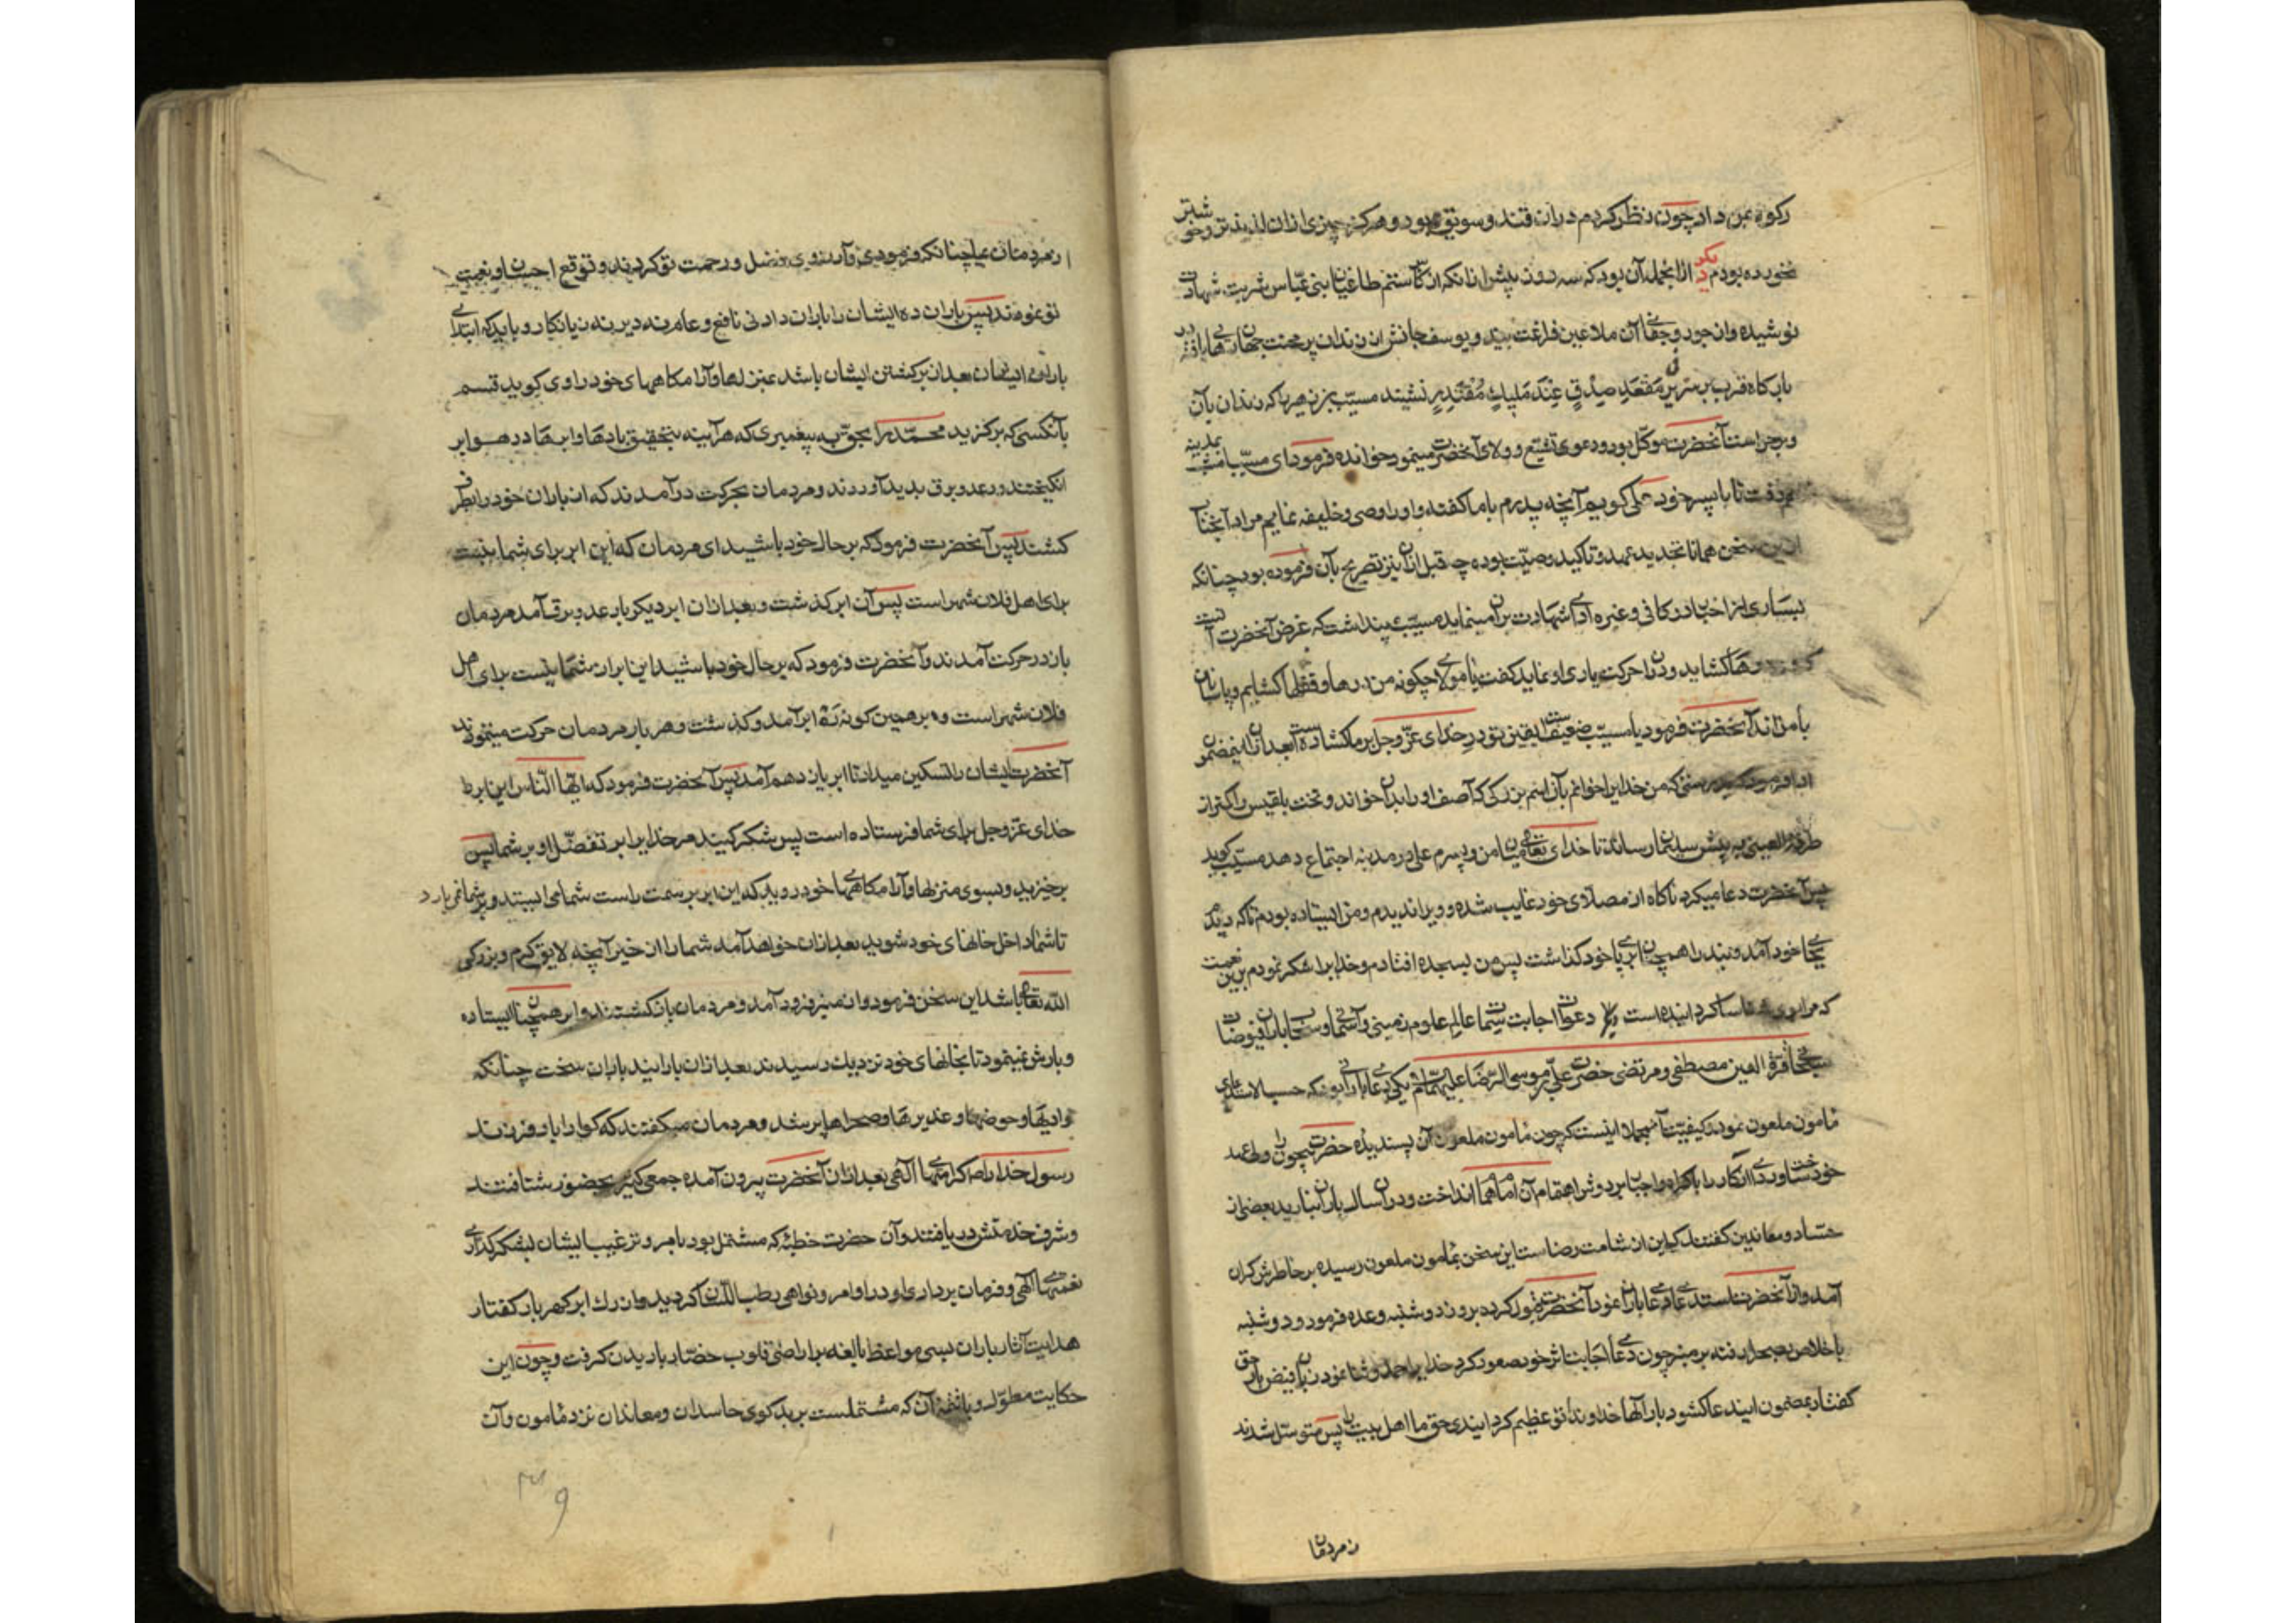 رکوه بمن داد چون نظر کردم در آن قند و سویق بود و هرگز چیزی از آن لذیذتر و خوشبوتر
نخورده بودم دیگر از آنجمله آن بود که سه روز پیش از آنکه از کاس ستم طاغیان بنی عباس شربت شهادت
نوشیده و از جور و جفای آن ملاعین فراغت بیند و یوسف جانش از زندان پر محنت جهان رهایی یافته در
بارگاه قرب بر سریر مَقْعَدِ صِدْقٍ عِنْدَ مَلِیكٍ مُقْتَدِرٍ نشیند مسیّب بن زهیر را که زندان بان
و بحراست آنحضرت موکل بود و دعوی تشیع و ولای آنحضرت مینمود خوانده فرمود ای مسیّب امشب بمدینه
خود علی گویم آنچه پدرم با ما گفته و او را وصی و خلیفه نمایم مراد آنجناب
سخن همانا تجدید عهد و تاکید وصیّت بوده چه قبل از آن نیز تصریح بآن فرموده بود چنانکه
بسیاری از اخبار در کافی و غیره ادای شهادت بر آن مینماید مسیّب پنداشت که غرض آنحضرت آنست
درها گشاید و در آن حرکت یاری او نماید گفت یا مولای چگونه من درها و قفلها گشایم و پاسبانان
با من‌اند آنحضرت فرمود یا مسیّب ضعیف است یقین تو در خدای عزّ و جل بر ما گشاده است بعد از آن اینمضمون
که من خدایرا خوانم بآن اسم بزرگی که آصف او را بدان خواند و تخت بلقیس را کمتر از
طرفة العینی به پیش سلیمان رساند تا خدای تعالی میان من و پسرم علی در مدینه اجتماع دهد مسیّب گوید
پس آنحضرت دعا میکرد ناگاه از مصلای خود غایب شده و ویرا ندیدم و من ایستاده بودم تا که دیدم
بجای خود آمد و بند را همچنان بر پای خود گذاشت پس من بسجده افتادم و خدایرا شکر نمودم برین نعمت
که مرا شناسا گردانیده است دیگر دعوات اجابت سمات عالم علوم زمینی و آسمانی و سحاب باران فیوضات
سبحانی قرة العین مصطفی و مرتضی حضرت علی بن موسی الرضا علیهما السلام یکی دعای باران بود که حسب الاستدعای
مامون ملعون نمودند کیفیت آن مجملا اینست که چون مامون ملعون آن پسندیده حضرت بیچون را ولیعهد
خود ساخت و ردای آنکار را باکراه و اجبار بر دوش اهتمام آن امام همام انداخت و در آن سال باران نبارید بعضی از
حسّاد و معاندین گفتند که این از شامت رضا است این سخن بمامون ملعون رسیده بر خاطرش گران
آمد و از آنحضرت استدعای دعای باران نمود آنحضرت قبول کرده بروز دوشنبه وعده فرمود و دوشنبه
باخلاص بصحرا رفته بر منبر چون دعای اجابت اثر خود صعود کرد خدایرا حمد و ثنا نمود زبان فیض بار حق
گفتار بمضمون ایندعا گشود بار آلها خداوندا تو عظیم گردانیدی حق ما اهل بیت را پس متوسّل شدند
ز مردمان
مردمان بما چنانکه فرمودی و آرزوی فضل و رحمت تو کردند و توقع احسان و نعمت
تو نمودند پس باران ده ایشان را باران دادنی نافع و عام نه دیر نه زیانکار و باید که ابتدای
باران ایشان بعد از برگشتن ایشان باشد بمنزلها و آرامگاههای خود راوی گوید قسم
بآنکسی که برگزید محمّد را بحق به پیغمبری که هر آینه بتحقیق بادها و ابرها در هوا بر
انگیختند و رعد و برق پدید آوردند و مردمان بحرکت درآمدند که از باران خود را بطرفی
کشند پس آنحضرت فرمود که بر حال خود باشید ای مردمان که این ابر برای شما نیست
برای اهل فلان شهر است پس آن ابر گذشت و بعد از آن ابر دیگر با رعد و برق آمد مردمان
باز در حرکت آمدند و آنحضرت فرمود که بر حال خود باشید این ابر از شما نیست برای اهل
فلان شهر است و برهمین گونه نُه ابر آمد و گذشت و هر بار مردمان حرکت مینمودند
آنحضرت ایشان را تسکین میداد تا ابر یازدهم آمد پس آنحضرت فرمود که ایها النّاس این ابر را
خدای عزّ و جل برای شما فرستاده است پس شکر کنید مر خدایرا بر تفضّل او بر شما پس
برخیزید و بسوی منزلها و آرامگاههای خود روید که این ابر بر سمت راست شما می ایستد و بر شما نمی بارد
تا شما داخل خانهای خود شوید بعد از آن خواهد آمد شما را از خیر آنچه لایق کرم و بزرگی
الله تعالی باشد این سخن فرمود و از منبر فرود آمد و مردمان بازگشتند و ابر همچنان ایستاده
و بارش نمینمود تا بخانهای خود نزدیك رسیدند بعد از آن بارانید باران سخت چنانکه
وادیها و حوضها و غدیرها و صحراها پر شد و مردمان میگفتند که گوارا باد فرزند
رسول خدا را کرامتهای آلهی بعد از آن آنحضرت بیرون آمده جمعی کثیر بحضور شتافتند
و شرف خدمتش دریافتند و آن حضرت خطبهٔ که مشتمل بود بامر و ترغیب ایشان بشکرگذاری
نعمتهای آلهی و فرمان برداری او در اوامر و نواهی رطب اللسان گردید و از رك ابر گهربار گفتار
هدایت آثار باران بسی مواعظ بالغه بر اراضی قلوب حضّار باریدن گرفت و چون این
حکایت مطوّل و آن که مشتملست بر بدگوی حاسدان و معاندان نزد مامون و آن